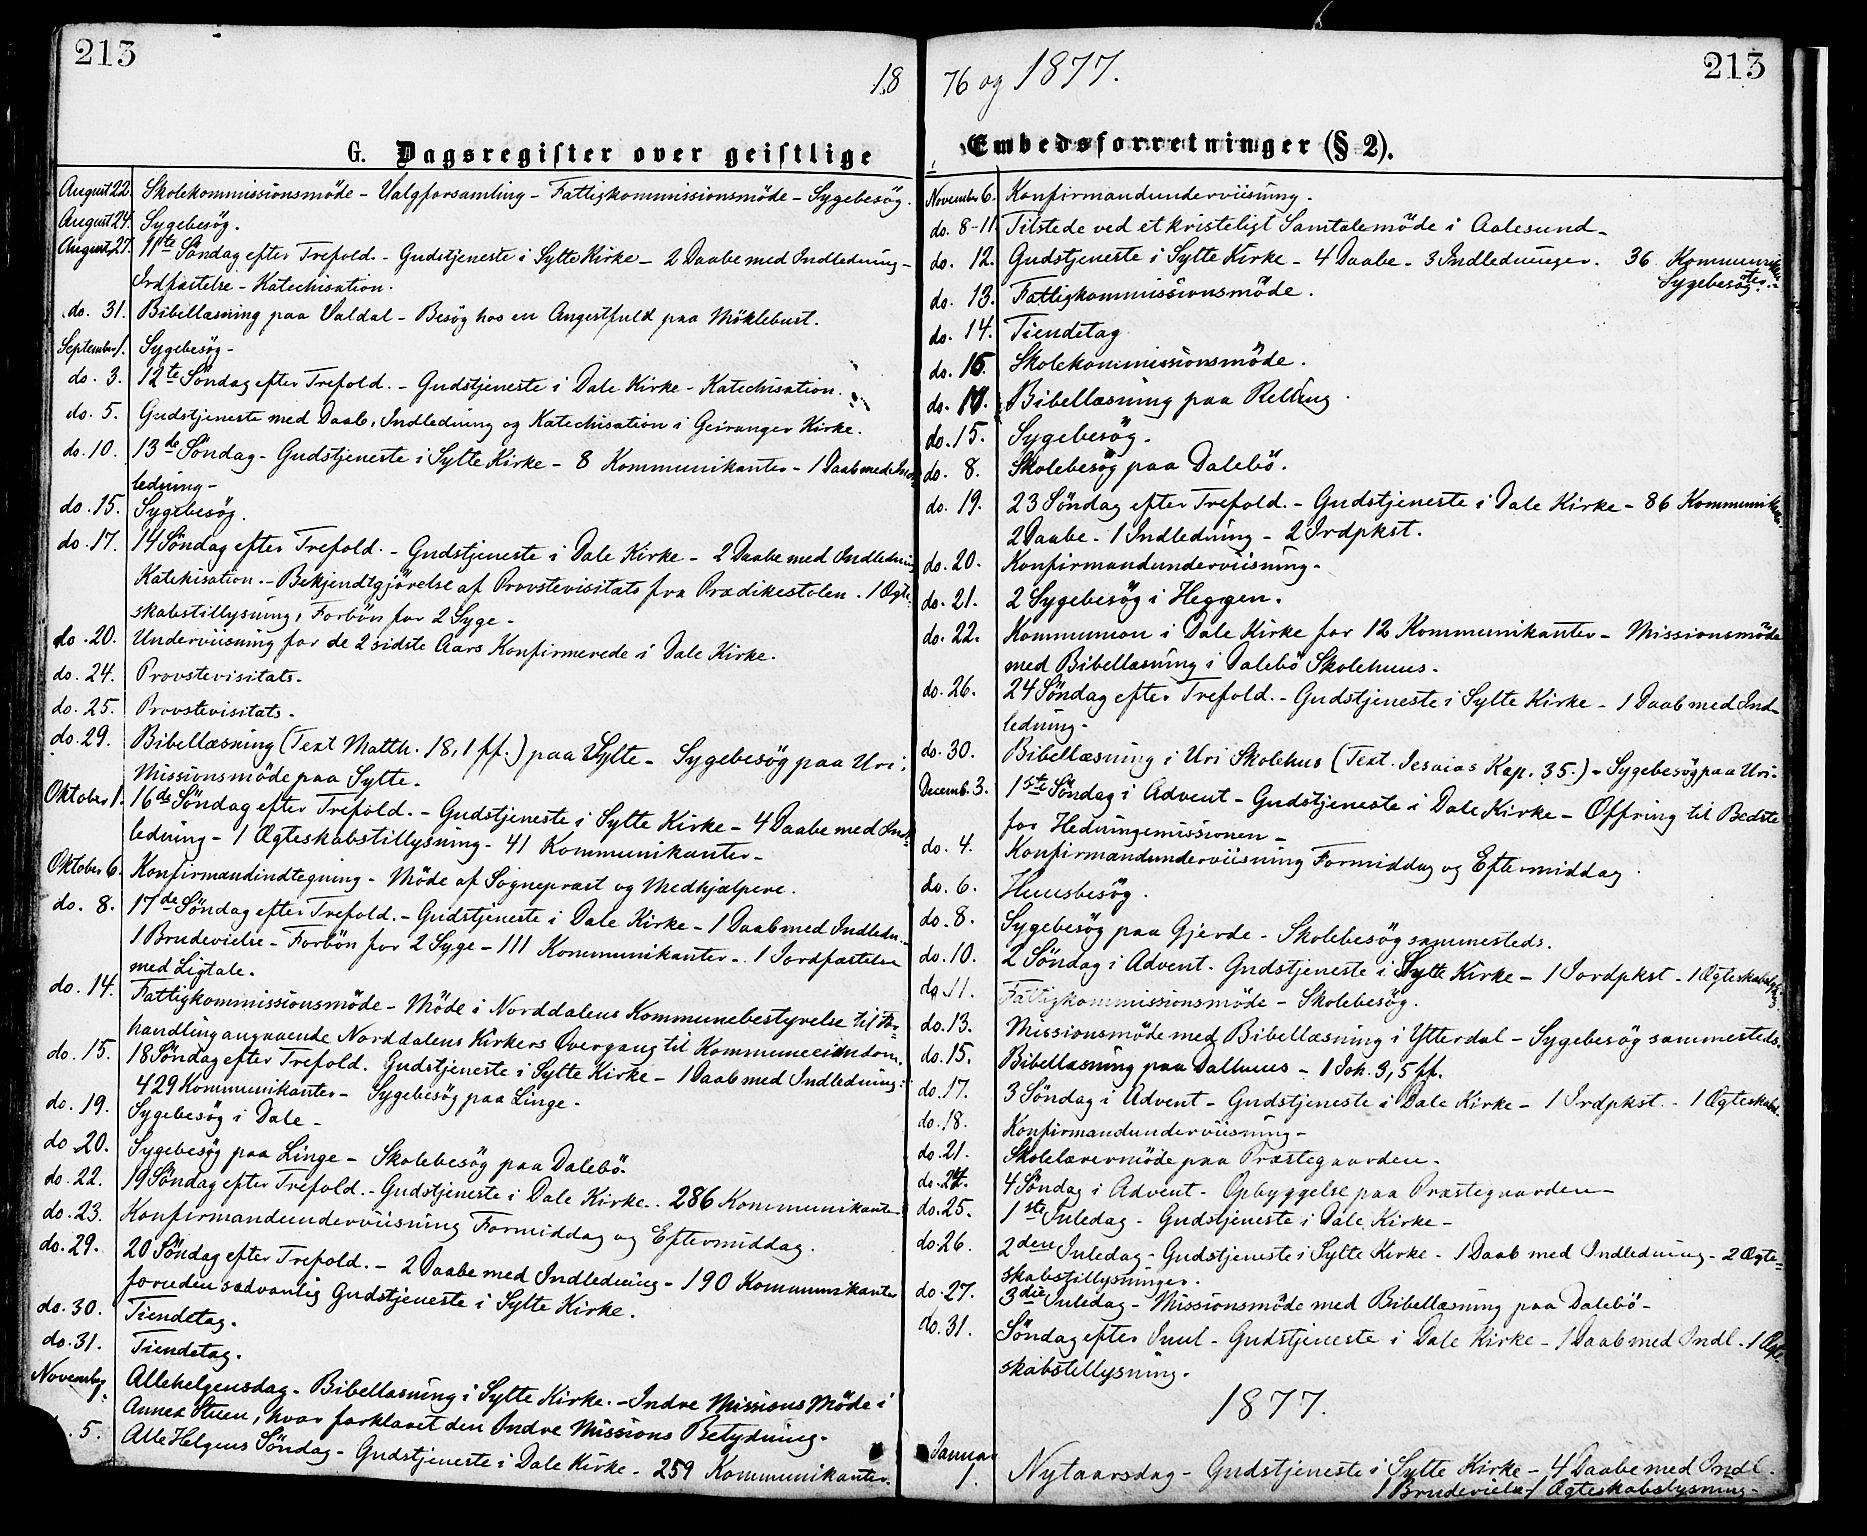 213
18
G. Dagsregister over geistlige
August 22. Skolekommissionsmöde - Valgforsamling - Fattigkommissionsmöde - Sygebesög.
August 24. Sygebesög.
August 27. 11te Söndag efter Trefold. - Gudstjeneste i Sylte Kirke - 2 Daabe med Indledning -
Irdfæstelse - Katechisation.
do. 31. Bibellæsning paa Valdal - Besög hos en Angestfuld paa Möklebust.
September 1. Sygebesög -
do. 3. 12te Söndag efter Trefold. - Gudstjeneste i Dale Kirke - Katechisation.
do. 5. Gudstjeneste med Daab, Indledning og Katechisation i Geiranger Kirke.
do. 10. 13de Söndag - Gudstjeneste i Sylte Kirke - 8 Kommunikanter - 1 Daab med Ind=
ledning -
do. 15. Sygebesög.
do. 17. 14 Söndag efter Trefold. - Gudstjeneste i Dale Kirke - 2 Daabe med Indledning
Katekisation. - Bekjendtgjörelse af Provstevisitats fra Prædikestolen. 1 Ægte=
skabstillysning, Forbön for 2 Syge -
do. 20. Underviisning for de 2 sidste Aars Konfirmerede i Dale Kirke.
do. 24. Provstevisitats -
do. 25. Provstevisitats -
do. 29. Bibellæsning (Text Matth. 18, 1 ff.) paa Sylte - Sygebesög paa Uri.
Missionsmöde paa Sylte -
Oktober 1. 16de Söndag efter Trefold. - Gudstjeneste i Sylte Kirke - 4 Daabe med Ind=
ledning - 1 Ægteskabstillysning - 41 Kommunikanter -
Oktober 6. Konfirmandindtegning - Möde af Sogneprest og Medhjælpere.
do. 8. 17de Söndag efter Trefold. - Gudstjeneste i Dale Kirke - 1 Daab med Indledn. -
1 Brudevielse - Forbön for 2 Syge - 111 Kommunikanter - 1 Jordfæstelse
med Ligtale.
do. 14. Fattigkommissionsmöde - Möde i Norddalens Kommunebestyrelse til
handling angaaende Norddalens Kirkers Overgang til Kommuneeiendom.
do. 15. 18 Söndag efter Trefold. Gudstjeneste i Sylte Kirke - 1 Daab med Indledning:
429 Kommunikanter - Sygebesög paa Linge -
do. 19. Sygebesög i Dale -
do 20. Sygebesög paa Linge - Skolebesög paa Dalebö.
do. 22. 19 Söndag efter Trefold. - Gudstjeneste i Dale Kirke. 286 Kommunikanter
do. 23. Konfirmandunderviisning Formiddag og Eftermiddag.
do. 29. 20 Söndag efter Trefold. - 2 Daabe med Indledning - 190 Kommunikanter
foruden sædvanlig Gudstjeneste i Sylte Kirke.
do. 30. Tiendetag.
do. 31. Tiendetag.
Novemb. 1. Allehelgensdag - Bibellæsning i Sylte Kirke. - Indre Missions Möde i
Annex Stuen, hvor forklaret den Indre Missions Betydning -
. 5. Alle Helgens Söndag - Gudstjeneste i Dale Kirke - 259 Kommunikanter.
213
76 og 1877.
Embedsforretninger (§ 2).
November 6. Konfirmandunderviisning.
do. 8-11 Tilstede ved et kristeligt Samtalemöde i Aalesund -
do. 12. Gudstjeneste i Sylte Kirke - 4 Daabe - 3 Indledninger. 36 Kommunikan
ter -
Sygebesög.
do. 13. Fattigkommissionsmöde.
do. 14. Tiendetag
do. 16. Skolekommissionsmöde.
do. 17. Bibellæsning paa Relling.
do. 15. Sygebesög -
do. 8. Skolebesög paa Dalebö.
do. 19. 23 Söndag efter Trefold. - Gudstjeneste i Dale Kirke - 86 Kommunikan.
2 Daabe - 1 Indledning - 2 Irdpkst.
do. 20. Konfirmandunderviisning -
do. 21. 2 Sygebesög i Heggen.
do. 22. Kommunion i Dale Kirke for 12 Kommunikanter - Missionsmöde
med Bibellæsning i Dalebö Skolehuus -
do. 26. 24 Söndag efter Trefold. - Gudstjeneste i Sylte Kirke - 1 Daab med Ind=
ledning -
do. 30. Bibellæsning i Uri Skolehus (Text. Jesaias Kap. 35.) - Sygebesög paa Uri.
Decemb. 3. 1ste Söndag i Advent - Gudstjeneste i Dale Kirke - Offring til Bedste
for Hedningemissionen -
do. 4. Konfirmandunderviisning Formiddag og Eftermiddag.
do. 6. Huusbesög.
do. 8. Sygebesög paa Gjerde - Skolebesög sammesteds.
do. 10. 2 Söndag i Advent. Gudstjeneste i Sylte Kirke - 1 Jordpkst - 1 Ægteskabs
do. 11. Fattigkommissionsmöde - Skolebesög.
do. 13. Missionsmöde med Bibellæsning i Ytterdal - Sygebesög sammesteds.
do. 15. Bibellæsning paa Dalhuus - 1 Joh. 3, 5 ff.
do. 17. 3 Söndag i Advent - Gudstjeneste i Dale Kirke - 1 Irdpkst. - 1 Ægteskabst.
do. 18. Konfirmandunderviisning -
do. 21. Skolelærermöde paa Præstegaarden -
do. 24. 4 Söndag i Advent - Opbyggelse paa Præstegaarden -
do. 25. 1ste Juledag - Gudstjeneste i Dale Kirke -
do. 26. 2den Juledag - Gudstjeneste i Sylte Kirke - 1 Daab med Indledning - 2 Ægte=
skabstillysninger.
do. 27. 3die Juledag - Missionsmöde med Bibellæsning paa Dalebö -
do. 31. Söndag efter Juul - Gudstjeneste i Dale Kirke - 1 Daab med Indl. - 1 Ægt.
skabstillysning.
1877.
Januar 1. Nytaarsdag - Gudstjeneste i Sylte Kirke - 4 Daabe med Indl.
1 Brudevielse 1 Ægteskabslysning -